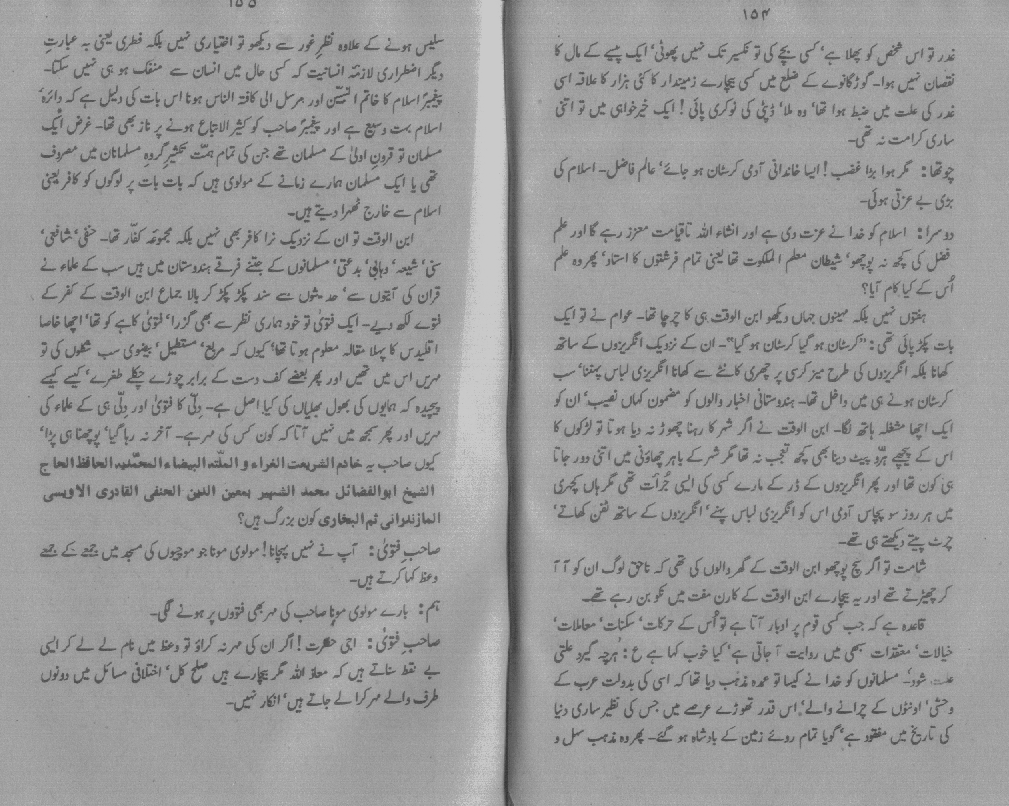 ۱۵۴
غدر تو اس شخص کو پھلا ہے، کسی بچے کی تو نکسیر تک نہیں پھوٹی، ایک پیسے کے مال کا
نقصان نہیں ہوا۔ گوڑگانوے کے ضلع میں کسی بیچارے زمیندار کا کئی ہزار کا علاقہ اسی
غدر کی علت میں ضبط ہوا تھا، وہ ملا، ڈپٹی کی نوکری پائی! ایک خیرخواہی میں تو اتنی
ساری کرامت نہ تھی۔
چوتھا: مگر ہوا بڑا غضب! ایسا خاندانی آدمی کرسٹان ہو جائے، عالم فاضل۔ اسلام کی
بڑی بے عزتی ہوئی۔
دوسرا: اسلام کو خدا نے عزت دی ہے اور انشاء اللہ تاقیامت معزز رہے گا اور علم
فضل کی کچھ نہ پوچھو، شیطان معلم الملکوت تھا یعنی تمام فرشتوں کا استاد، پھر وہ علم
اُس کے کیا کام آیا؟
ہفتوں نہیں بلکہ مہینوں جہاں دیکھو ابن الوقت ہی کا چرچا تھا۔ عوام نے تو ایک
بات پکڑ پائی تھی: "کرسٹان ہو گیا کرسٹان ہو گیا"۔ ان کے نزدیک انگریزوں کے ساتھ
کھانا بلکہ انگریزوں کی طرح میز کرسی پر چھری کانٹے سے کھانا انگریزی لباس پہننا، سب
کرسٹان ہونے ہی میں داخل تھا۔ ہندوستانی اخبار والوں کو مضمون کہاں نصیب، ان کو
ایک اچھا مشغلہ ہاتھ لگا۔ ابن الوقت نے اگر شہر کا رہنا چھوڑ نہ دیا ہوتا تو لڑکوں کا
اس کے پیچھے ہڑد پیٹ دینا بھی کچھ تعجب نہ تھا مگر شہر کے باہر چھاؤنی میں اتنی دور جاتا
ہی کون تھا اور پھر انگریزوں کے ڈر کے مارے کسی کی ایسی جُرأت تھی مگر ہاں کچہری
میں ہر روز سو پچاس آدمی اس کو انگریزی لباس پہنے، انگریزوں کے ساتھ ٹفن کھاتے،
چرٹ پیتے دیکھتے ہی تھے۔
شامت تو اگر سچ پوچھو ابن الوقت کے گھر والوں کی تھی کہ ناحق لوگ ان کو آ آ
کر چھیڑتے تھے اور یہ بیچارے ابن الوقت کے کارن مفت میں نکو بن رہے تھے۔
قاعدہ ہے کہ جب کسی قوم پر ادبار آتا ہے تو اُس کے حرکات، سکنات، معاملات،
خیالات، معتقدات سبھی میں روایت آ جاتی ہے، کیا خوب کہا ہے ع: ہرچہ گیرد علتی
علت شود۔ مسلمانوں کو خدا نے کیسا تو عمدہ مذہب دیا تھا کہ اسی کی بدولت عرب کے
وحشی، اونٹوں کے چرانے والے، اس قدر تھوڑے عرصے میں جس کی نظیر ساری دنیا
کی تاریخ میں مفقود ہے، گویا تمام روئے زمین کے بادشاہ ہو گئے۔ پھر وہ مذہب سہل و
۱۵۵
سلیس ہونے کے علاوہ نظرِ غور سے دیکھو تو اختیاری نہیں بلکہ فطری یعنی بہ عبارتِ
دیگر اضطراری لازمۂ انسانیت کہ کسی حال میں انسان سے منفک ہو ہی نہیں سکتا۔
پیغمبرِ اسلام کا خاتم النبیین اور مرسل الیٰ کافۃ الناس ہونا اس بات کی دلیل ہے کہ دائرۂ
اسلام بہت وسیع ہے اور پیغمبرؐ صاحب کو کثیر الاتباع ہونے پر ناز بھی تھا۔ غرض ایک
مسلمان تو قرونِ اولیٰ کے مسلمان تھے جن کی تمام ہمّت تکثیرِ گروہِ مسلمانان میں مصروف
تھی یا ایک مسلمان ہمارے زمانے کے مولوی ہیں کہ بات بات پر لوگوں کو کافر یعنی
اسلام سے خارج ٹھہرا دیتے ہیں۔
ابن الوقت تو ان کے نزدیک نرا کافر بھی نہیں بلکہ مجموعۂ کفّار تھا۔ حنفی، شافعی،
سنی، شیعہ، وہابی، بدعتی، مسلمانوں کے جتنے فرقے ہندوستان میں ہیں سب کے علماء نے
قرآن کی آیتوں سے، حدیثوں سے سند پکڑ پکڑ کر بالاجماع ابن الوقت کے کفر کے
فتوے لکھ دیے۔ ایک فتویٰ تو خود ہماری نظر سے بھی گزرا، فتویٰ کاہے کو تھا، اچھا خاصا
اقلیدس کا پہلا مقالہ معلوم ہوتا تھا، کیوں کہ مربع، مستطیل، بیضوی سب شکلوں کی تو
مہریں اس میں تھیں اور پھر بعضے کف دست کے برابر چوڑے چکلے طغرے، کیسے کیسے
پیچیدہ کہ ہمایوں کی بھول بھلیاں کی کیا اصل ہے۔ دِلّی کا فتویٰ اور دِلّی ہی کے علماء کی
مہریں اور پھر سمجھ میں نہیں آتا کہ کون کس کی مہر ہے۔ آخر نہ رہا گیا، پوچھنا ہی پڑا،
کیوں صاحب یہ خادم الشریعت الغراء و الملّتہ البیضاء المحمّدیہ الحافظ الحاج
الشیخ ابوالفضائل محمد الشہیر بمعین الدین الحنفی القادری الاویسی
المازندرانی ثم البخاری کون بزرگ ہیں؟
صاحب فتویٰ: آپ نے نہیں پہچانا! مولوی مونا جو موچیوں کی مسجد میں جمعے کے جمعے
وعظ کہا کرتے ہیں۔
ہم: بارے مولوی مونا صاحب کی مہر بھی فتووں پر ہونے لگی۔
صاحب فتویٰ: اجی حضرت! اگر ان کی مہر نہ کراؤ تو وعظ میں نام لے لے کر ایسی
بے نقط سناتے ہیں کہ معاذ اللہ مگر بیچارے ہیں صلح کل، اختلافی مسائل میں دونوں
طرف والے مہر کرا لے جاتے ہیں، انکار نہیں۔